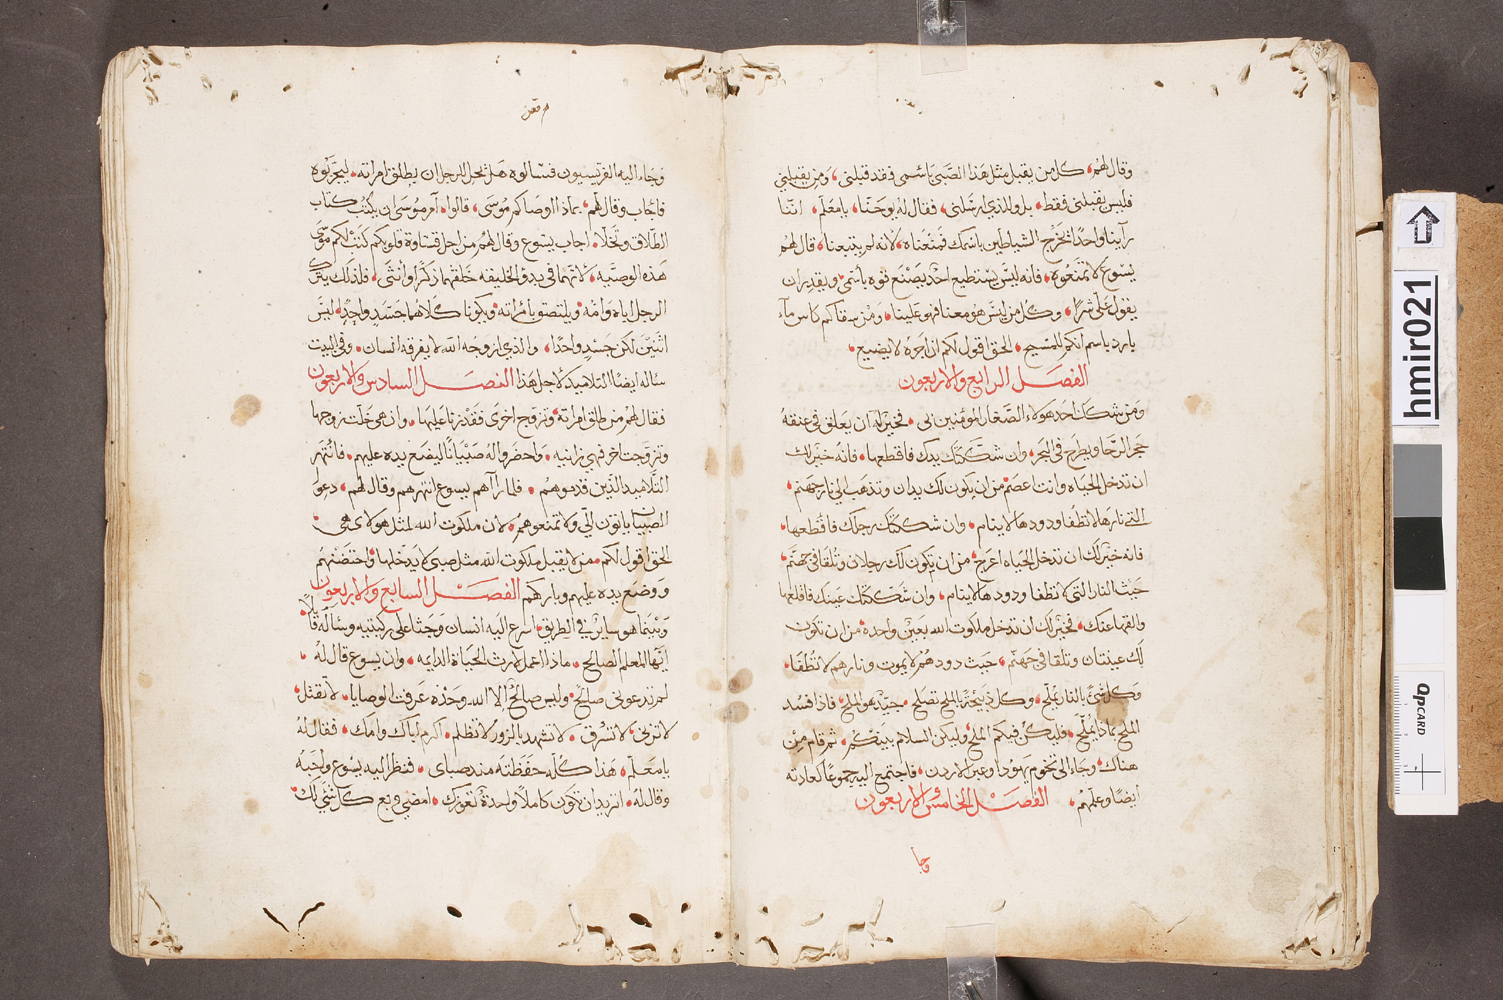 وقال لهم كل من يقبل مثل هذا الصبي باسمي فقد قبلني ومن يقبلني
فليس يقبلني فقط بل والذي ارسلني فقال له يوحنا يا معلم اننا
راينا واحدا يخرج الشياطين باسمك فمنعناه لانه لم يتبعنا قال لهم
يسوع لا تمنعوه فانه ليس يستطيع احد يصنع قوه باسمي ويقدر ان
يقول علي شرا وكل من ليس هو معنا فهو علينا ومن سقاكم كاس ماء
بارد باسم انكم للمسيح الحق اقول لكم ان اجره لا يضيع
الفصل الرابع والاربعون
ومن شكك احد هولاء الصغار المومنين بي فخير له ان يعلق في عنقه
حجر الرحا ويطرح في البحر وان شككتك يدك فاقطعها فانه خير لك
ان تدخل الحياه وانت اعصم من ان يكون لك يدان وتذهب الي نار جهنم
التي نارها لا تطفا ودودها لا ينام وان شككتك رجلك فاقطعها
فانه خير لك ان تدخل الحياه اعرج من ان يكون لك رجلان وتلقا في جهنم
حيث النار التي لا تطفا ودودها لا ينام وان شككتك عينك فاقلعها
والقها عنك فخير لك ان تدخل ملكوت الله بعين واحدة من ان تكون
لك عينتان وتلقا في جهنم حيث دودهم لا يموت ونارهم لا تطفا
وكل شي بالنار يملح وكل ذبيحة بالملح تصلح جيد هو الملح فاذا فسد
الملح بماذا يملح فليكن فيكم الملح وليكن السلام بينكم ثم قام من
هناك وجاء الي تخوم يهودا وعبر الاردن فاجتمع اليه جموعا كعادته
ايضا وعلمهم الفصل الخامس والاربعون
وجا
وجاء اليه الفريسيون فسالوه هل يحل للرجل ان يطلق امراته ليجربوه
فاجاب وقال لهم بماذا اوصاكم موسى قالوا امر موسى ان يكتب كتاب
الطلاق وتخلا اجاب يسوع وقال لهم من اجل قساوة قلوبكم كتب لكم موسى
هذه الوصيه لانهما في بدو الخليقه خلقهما ذكرا وانثى فلذلك يترك
الرجل اباه وامه ويلتصق بامراته ويكونا كلاهما جسد واحد ليس
اثنين لكن جسد واحدا والذي ازوجه الله لا يفرقه انسان وفي البيت
ساله ايضا التلاميذ لاجل هذا الفصل السادس والاربعون
فقال لهم من طلق امراته وتزوج اخرى فقد زنا عليها وان هي خلت زوجها
وتزوجت اخر فهي زانيه واحضروا له صبيانا ليضع يده عليهم فانتهر
التلاميذ الذين قدموهم فلما راهم يسوع انتهرهم وقال لهم دعوا
الصبيان ياتون الي ولا تمنعوهم لان ملكوت الله لمثل هولاى هي
الحق اقول لكم من لا يقبل ملكوت الله مثل صبي لا يدخلها واحتضنهم
ووضع يده عليهم وباركهم الفصل السابع والاربعون
وبينما هو ساير في الطريق اسرع اليه انسان وجثا علي ركبتيه وساله قايلا
ايها المعلم الصالح ماذا اعمل لارث الحياة الدايمه وان يسوع قال له
لم تدعوني صالح وليس صالح الا الله وحده عرفت الوصايا لا تقتل
لا تزني لا تسرق لا تشهد بالزور لا تظلم اكرم اباك وامك فقال له
يا معلم هذا كله حفظته منذ صباى فنظر اليه يسوع واحبه
وقال له اتريد ان تكون كاملا واحدة تعوزك امضي وبع كل شي لك
hmir021
QP CARD